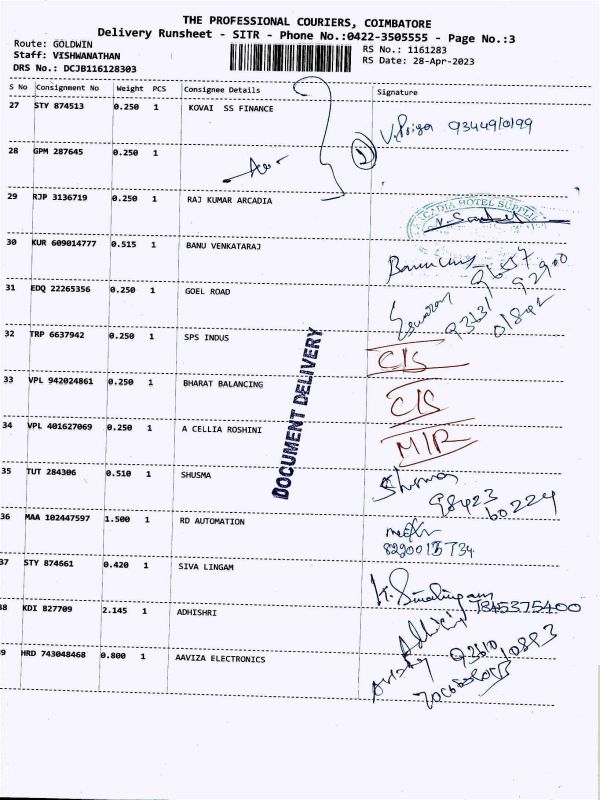 THE PROFESSIONAL COURIERS, COIMBATORE
Delivery Runsheet - SITR - Phone No.:0422-3505555 - Page No.:3
Route: GOLDWIN RS No.: 1161283
Staff: VISHWANATHAN RS Date: 28-Apr-2023
DRS No.: DCJB116128303
S No Consignment No Weight PCS Consignee Details Signature
27 STY 874513 0.250 1 KOVAI SS FINANCE
28 GPM 287645 0.250 1
29 RJP 3136719 0.250 1 RAJ KUMAR ARCADIA
30 KUR 609014777 0.515 1 BANU VENKATARAJ
31 EDQ 22265356 0.250 1 GOEL ROAD
32 TRP 6637942 0.250 1 SPS INDUS C/S
33 VPL 942024861 0.250 1 BHARAT BALANCING C/S
34 VPL 401627069 0.250 1 A CELLIA ROSHINI M/R
35 TUT 284306 0.510 1 SHUSMA
98423
60224
36 MAA 102447597 1.500 1 RD AUTOMATION
37 STY 874661 0.420 1 SIVA LINGAM
7845375400
38 KDI 827709 2.145 1 ADHISHRI
39 HRD 743048468 0.800 1 AAVIZA ELECTRONICS
DOCUMENT DELIVERY